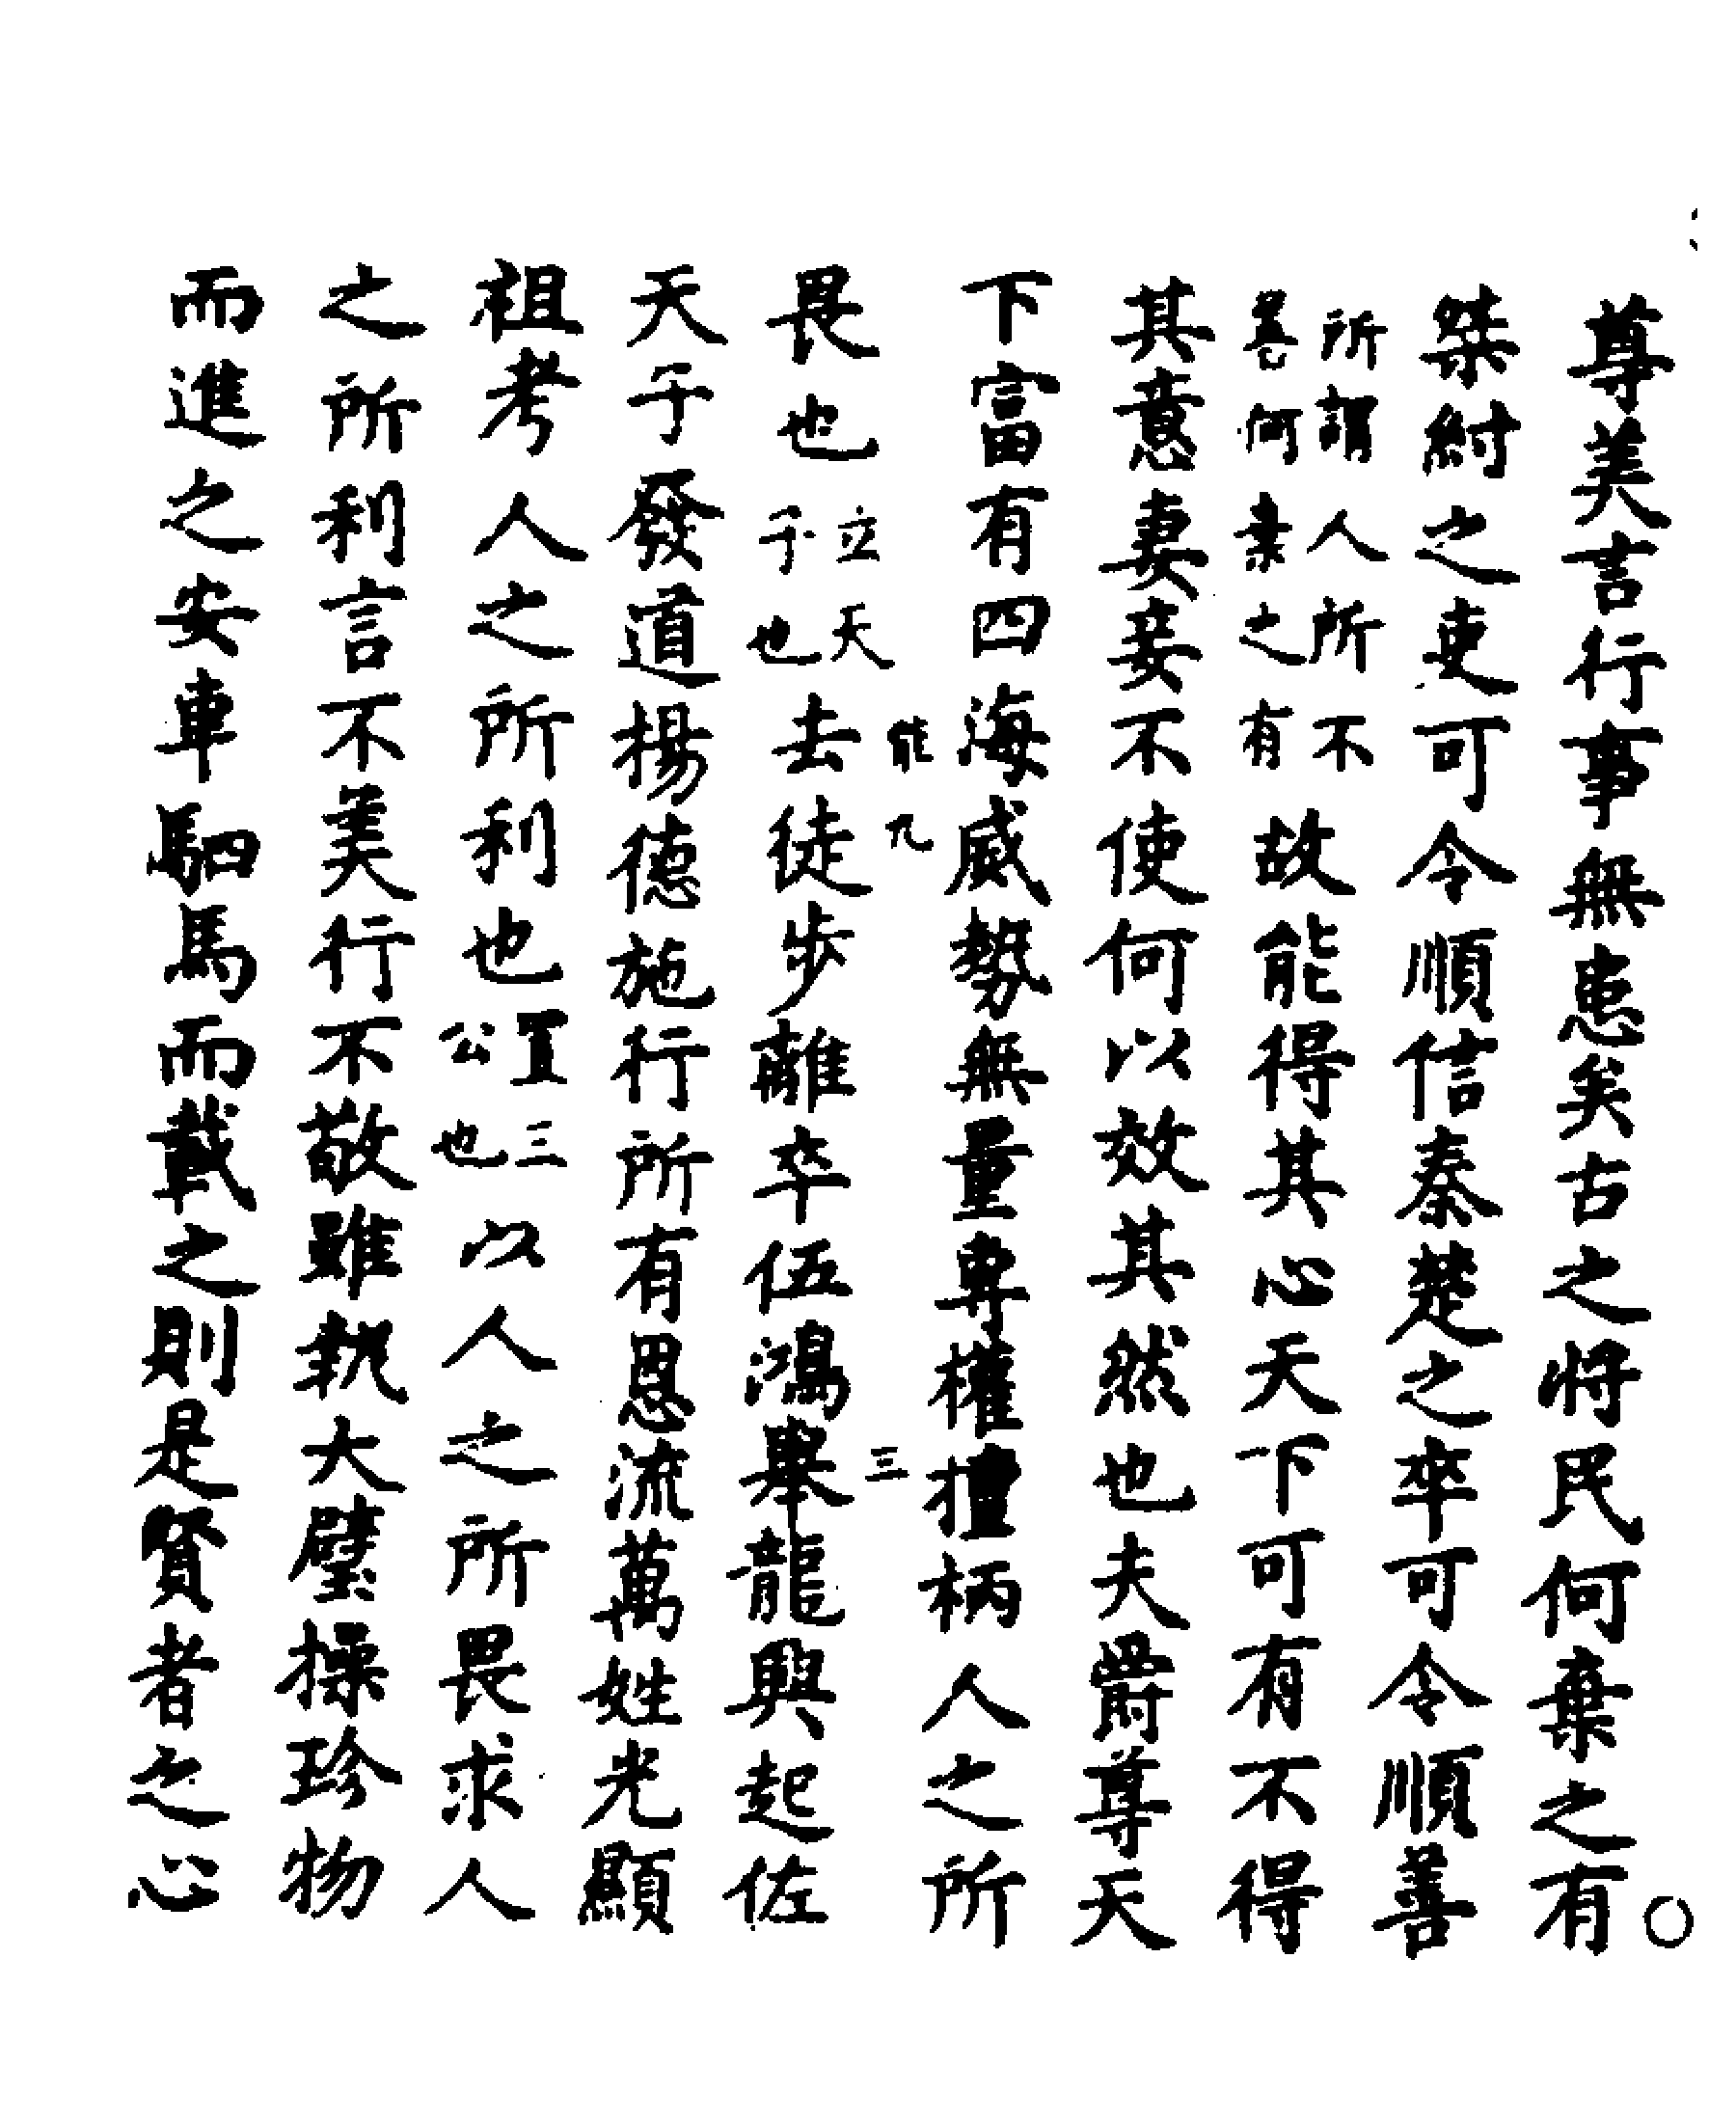 尊美言行事無患矣古之將民何棄之有
桀紂之吏可令順信秦楚之卒可令順善
所謂人所不
善何棄之有
故能得其心天下可有不得
其意妻妾不使何以效其然也夫爵尊天
下富有四海威勢無量專權擅柄人之所
畏也
立天
子也
去徒步離卒伍鴻舉龍興起佐
三
天子發道揚德施行所有恩流萬姓光顯
祖考人之所利也
置三
公也
以人之所畏求人
之所利言不美行不敬雖執大璧操珍物
而進之安車駟馬而載之則是賢者之心